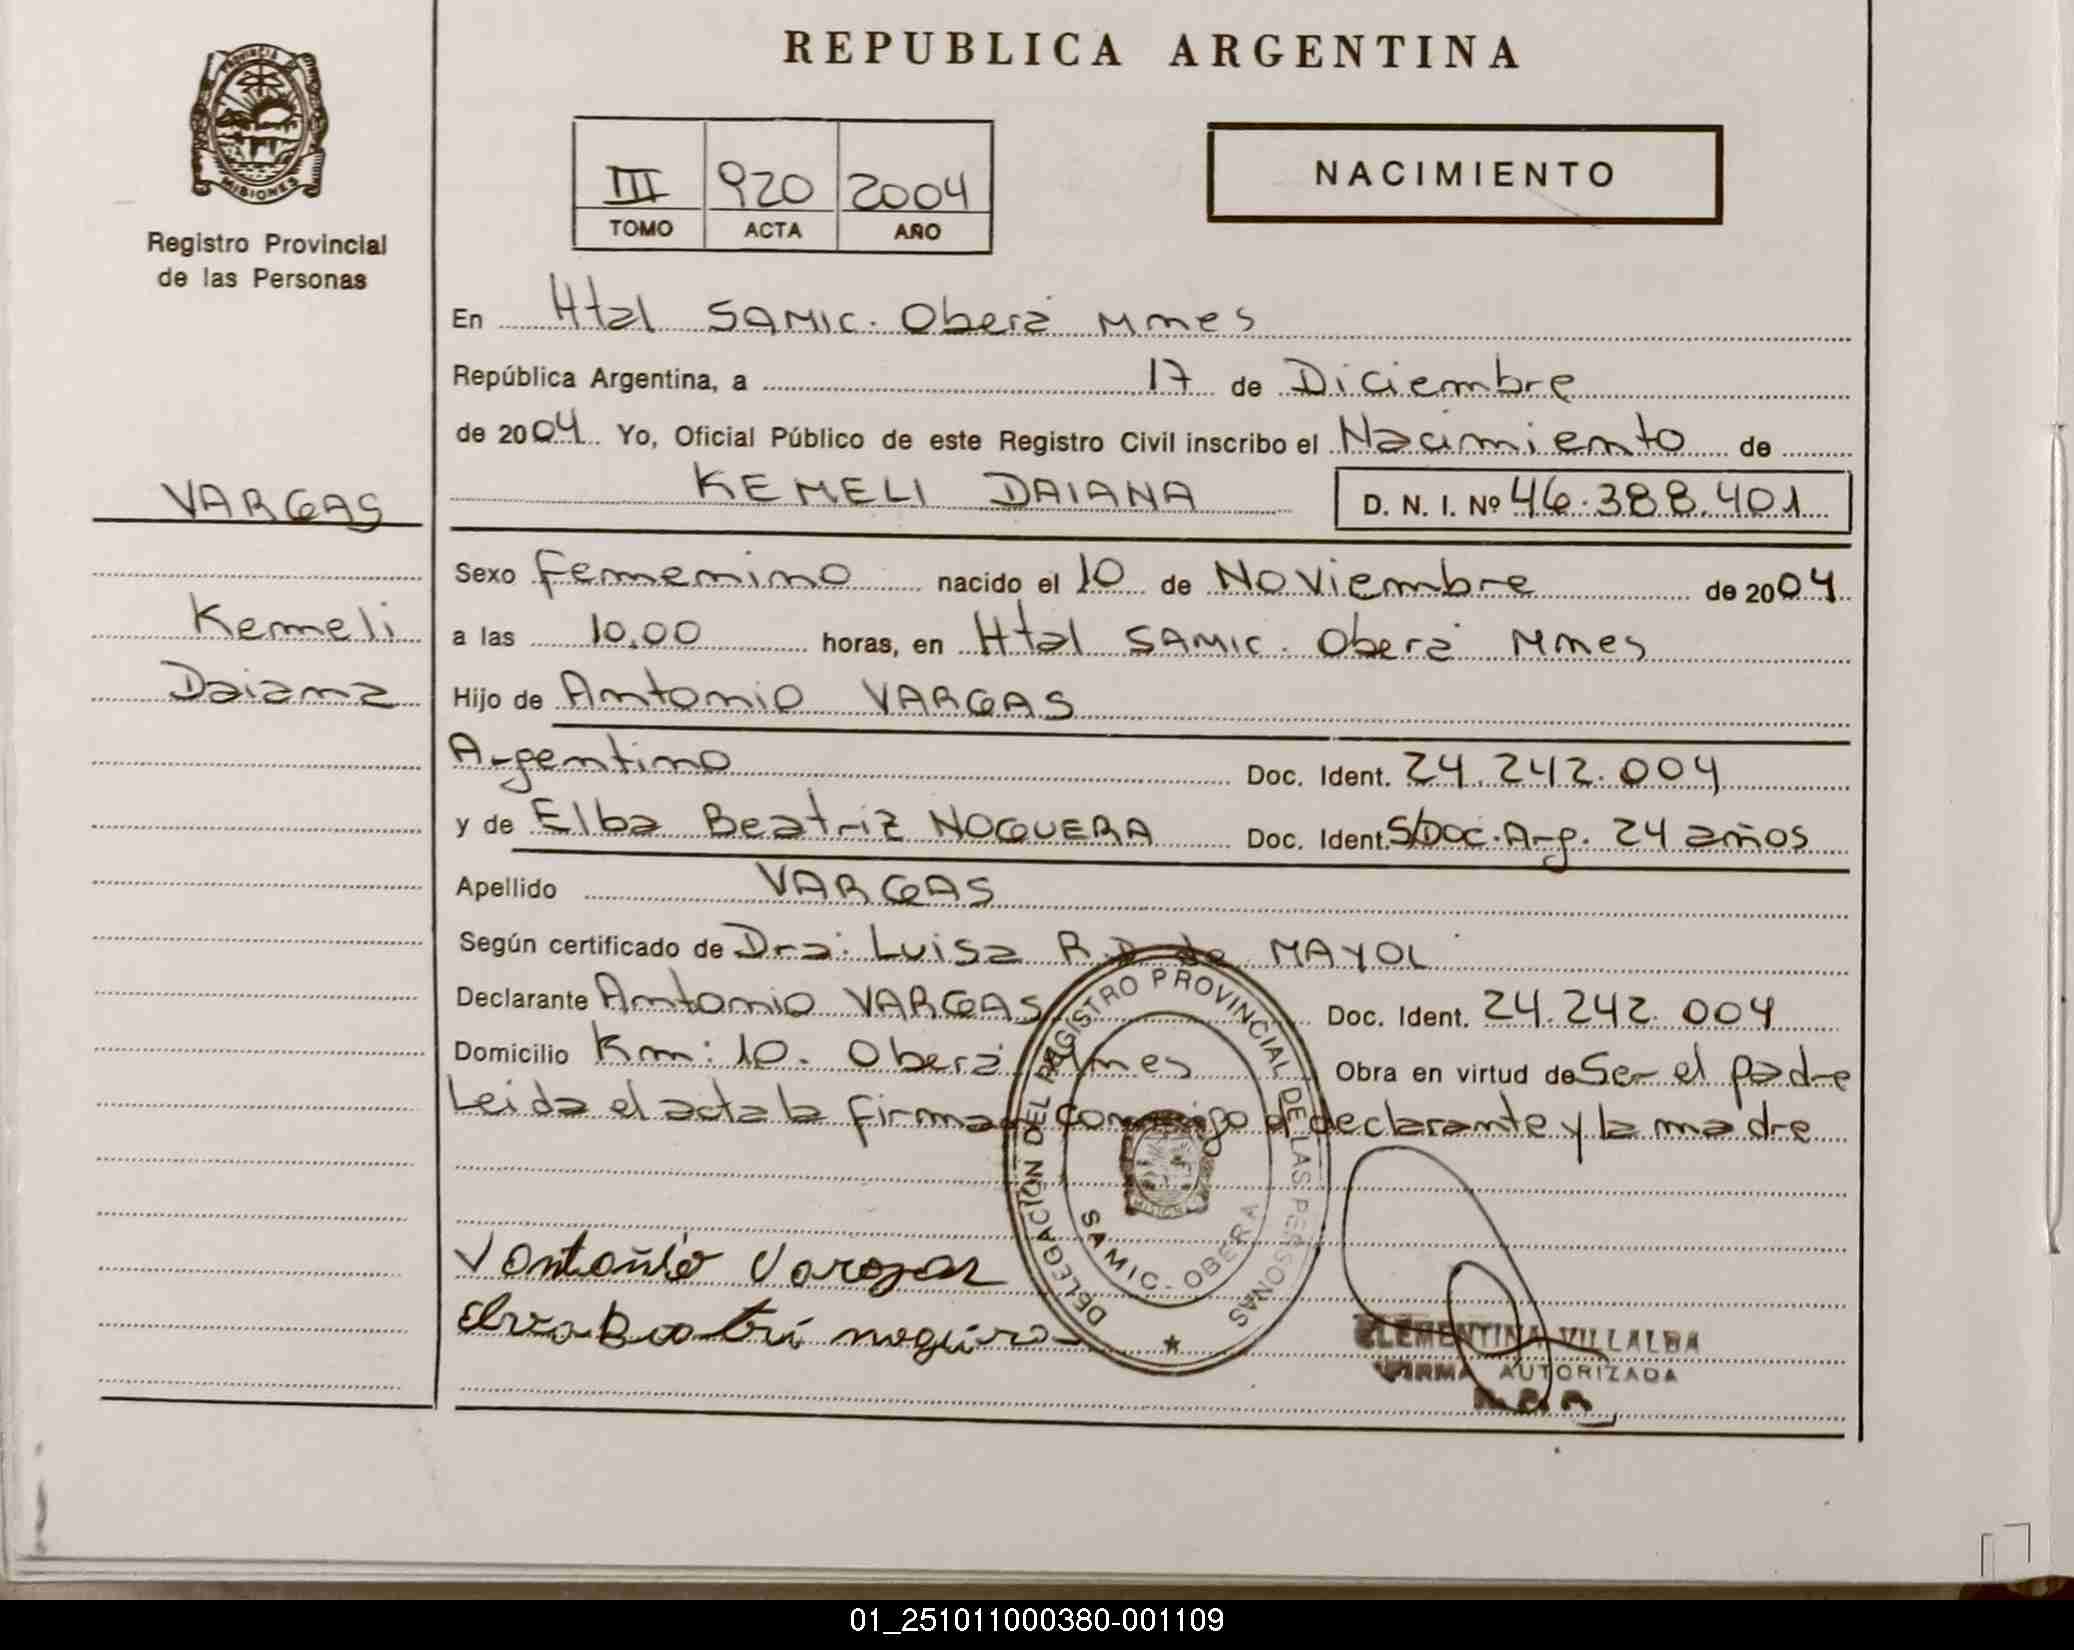 REPUBLICA ARGENTINA
PROVINCIA DE
MISIONES
Registro Provincial
de las Personas
III 920 2004
TOMO ACTA AÑO
NACIMIENTO
En Htal SAMIC. Oberá Mnes
República Argentina, a 17 de Diciembre
de 2004 Yo, Oficial Público de este Registro Civil inscribo el Nacimiento de
KEMELI DAIANA D. N. I. Nº 46.388.401
VARGAS
Kemeli
Daiana
Sexo Femenino nacido el 10 de Noviembre de 2004
a las 10,00 horas, en Htal SAMIC. Oberá Mnes
Hijo de Antonio VARGAS
Argentino Doc. Ident. 24.242.004
y de Elba Beatriz NOGUERA Doc. Ident. S/Doc. Arg. 24 años
Apellido VARGAS
Según certificado de Dra: Luisa R.D de MAYOL
Declarante Antonio VARGAS Doc. Ident. 24.242.004
Domicilio Km: 10. Oberá Mnes Obra en virtud de Ser el padre
Leida el acta la firman conmigo el declarante y la madre
DELEGACIÓN DEL REGISTRO PROVINCIAL DE LAS PERSONAS
SAMIC - OBERA
MISIONES
Vargas
noguera
CLEMENTINA VILLALBA
FIRMA AUTORIZADA
01_251011000380-001109